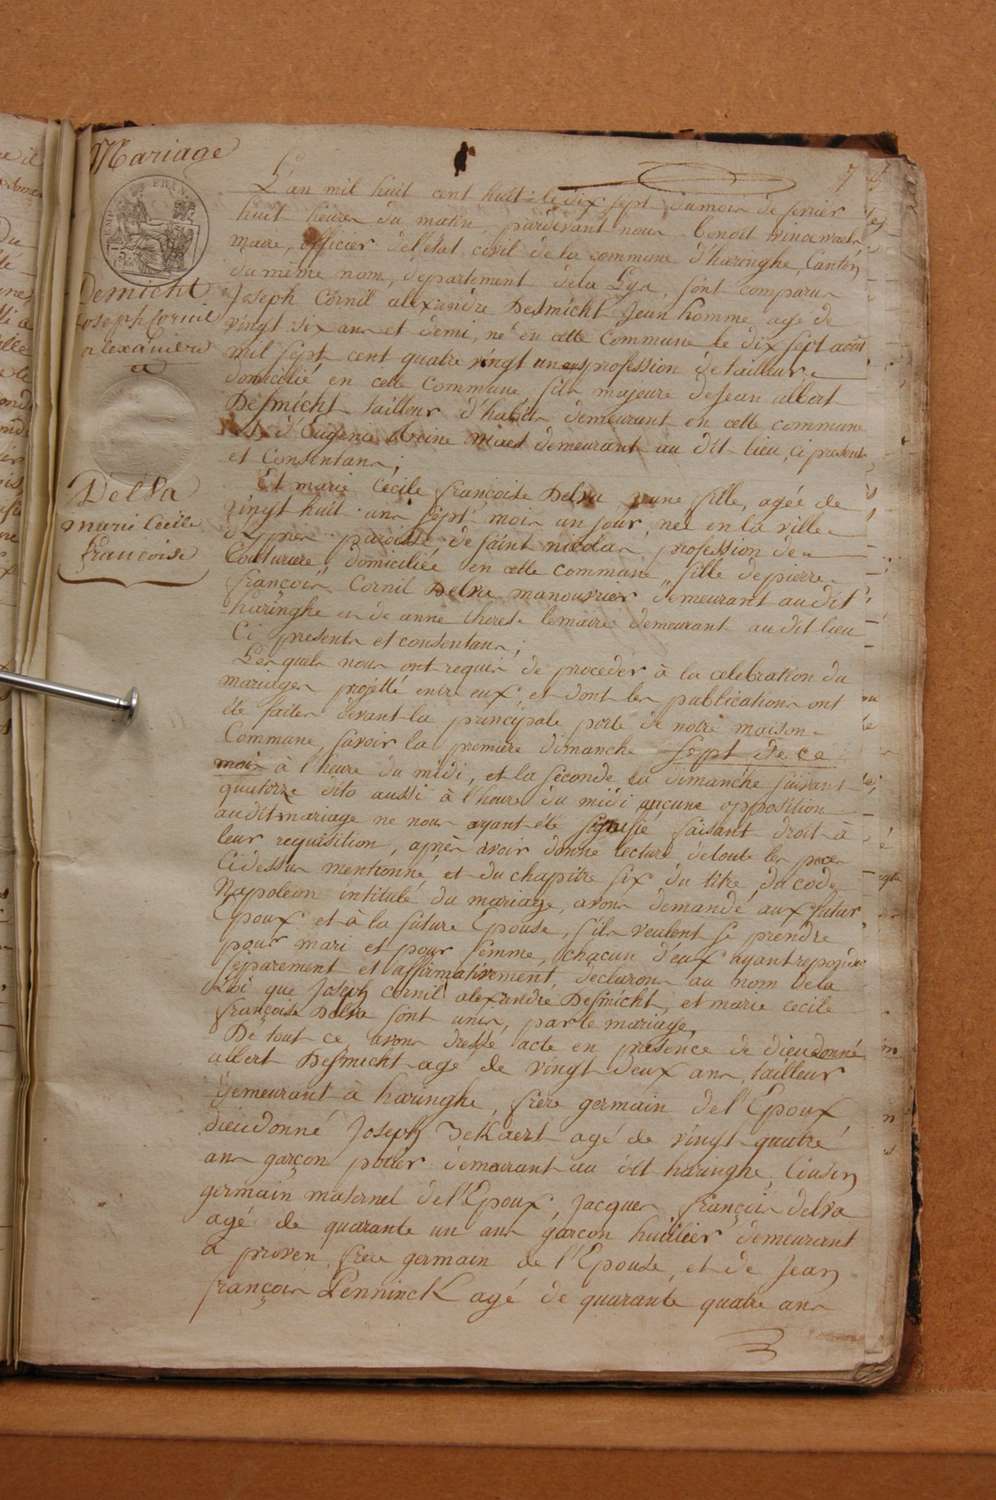 Mariage
7
Desmicht
Joseph Cornil
alexandre
et
Delva
marie Cecile
francoise
L'an mil huit cent huit le dix sept du mois de fevrier
huit heures du matin, pardevant nous Benoit
maire, officier de l'état civil de la commune d'haringhe, Canton
du même nom, département de la Lys, sont comparus
Joseph Cornil alexandre Desmicht Jeun homme agé de
vingt six ans et demi, né en cette Commune le dix sept août
mil sept cent quatre vingt un profession de tailleur
domicilié en cette Commune fils majeure de Jean albert
Desmicht tailleur d'habits demeurant en cette commune
et d'Eugenie demeurant au dit lieu, ci presents
et Consentans;
Et marie Cecile françoise Delva jeune fille, agée de
vingt huit ans sept mois un jour, née en la ville
d'Ypres paroisse de saint nicolas, profession de
Couturiere, domiciliée en cette commune, fille de pierre
françois Cornil Delva manouvrier demeurant au dit
haringhe et de anne therese lemaire demeurant au dit lieu
Ci presents et consentans;
Lesquels nous ont requis de proceder à la celebration du
mariage projetté entre eux, et dont les publications ont
été faites devant la principale porte de notre maison
Commune, savoir la premiere dimanche sept de ce
mois à l'heure du midi, et la seconde le dimanche suivant
quatorze dito aussi à l'heure du midi aucune opposition
au dit mariage ne nous ayant été signifié faisant droit à
leur requisition, après avoir donné lecture de toute les pieces
Cidessus mentionné et du chapitre six du titre du code
Napoleon intitulé du mariage, avons demandé aux futur
Epoux et à la future Epouse, s'ils veulent se prendre
pour mari et pour femme, chacun d'eux ayant repondu
séparement et affirmativement, declarons au nom de la
Loi que Joseph Cornil alexandre Desmicht, et marie cecile
françoise Delva sont unis, par le mariage,
De tout ce avons dressé acte en presence de dieudonné
albert Desmicht agé de vingt deux ans, tailleur
demeurant à haringhe, frere germain de l'Epoux
dieudonné Joseph agé de vingt quatre
ans garçon demeurant au dit haringhe, Cousin
germain maternel de l'Epoux, Jacques françois delva
agé de quarante un ans garçon huillier demeurant
à proven, frere germain de l'Epouse, et de Jean
françois Penninck agé de quarante quatre ans